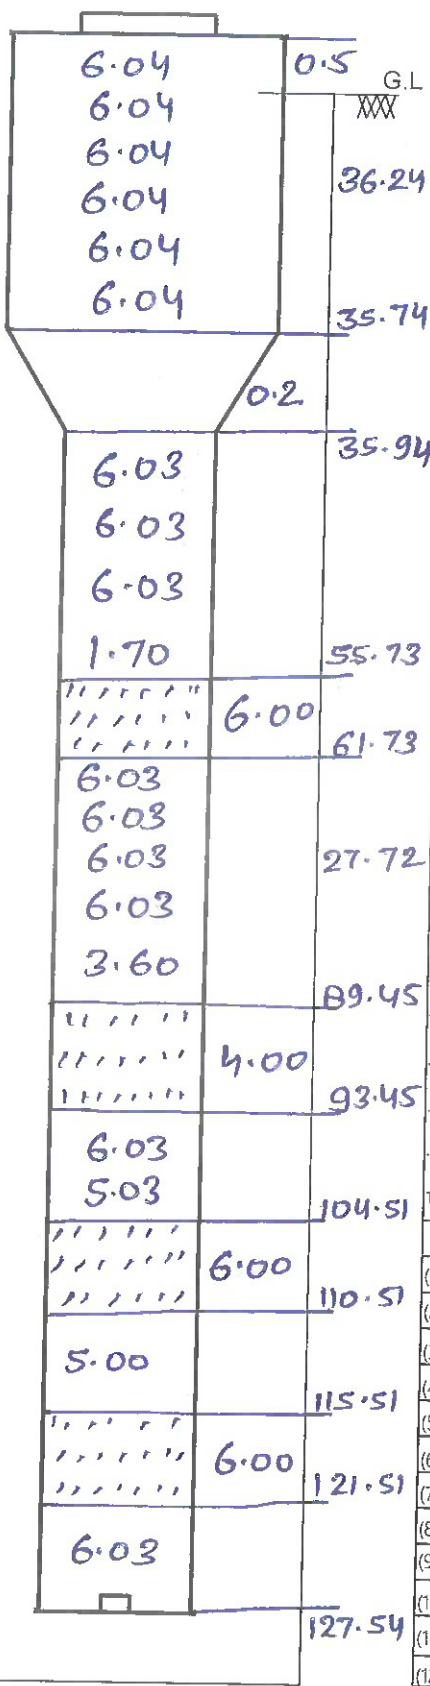 6.04 0.5
G.L
6.04
6.04
6.04 36.24
6.04
6.04
35.74
0.2
35.94
6.03
6.03
6.03
1.70 55.73
6.00
61.73
6.03
6.03
6.03 27.72
6.03
3.60
89.45
4.00
93.45
6.03
5.03
104.51
6.00
110.51
5.00
115.51
6.00
121.51
6.03
127.54